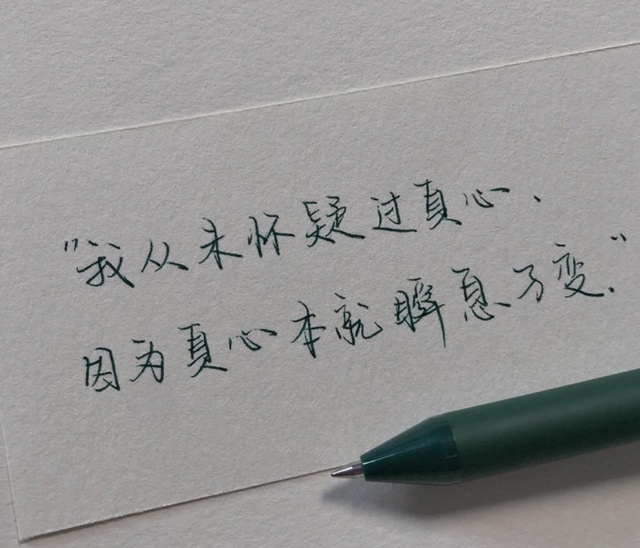 "我从未怀疑过真心、
因为真心本就瞬息万变."